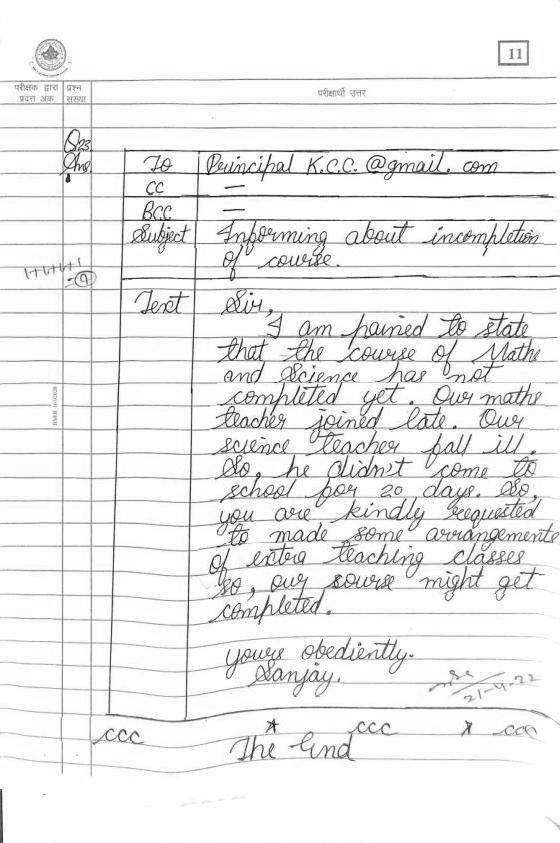 11
परीक्षक द्वारा प्रदत्त अंक
प्रश्न संख्या
परीक्षार्थी उत्तर
Q.23
Ans.
To Principal K.C.C.@gmail.com
CC —
BCC —
Subject Informing about incompletion
of course.
1+1+1+1
=4
Text Sir,
I am pained to state
that the course of Maths
and Science has not
completed yet. Our maths
teacher joined late. Our
science teacher fall ill.
So, he didn't come to
school for 20 days. So,
you are kindly requested
to made some arrangements
of extra teaching classes
so, our sourse might get
completed.
yours obediently.
Sanjay.
21-4-22
ccc ccc ccc
The End